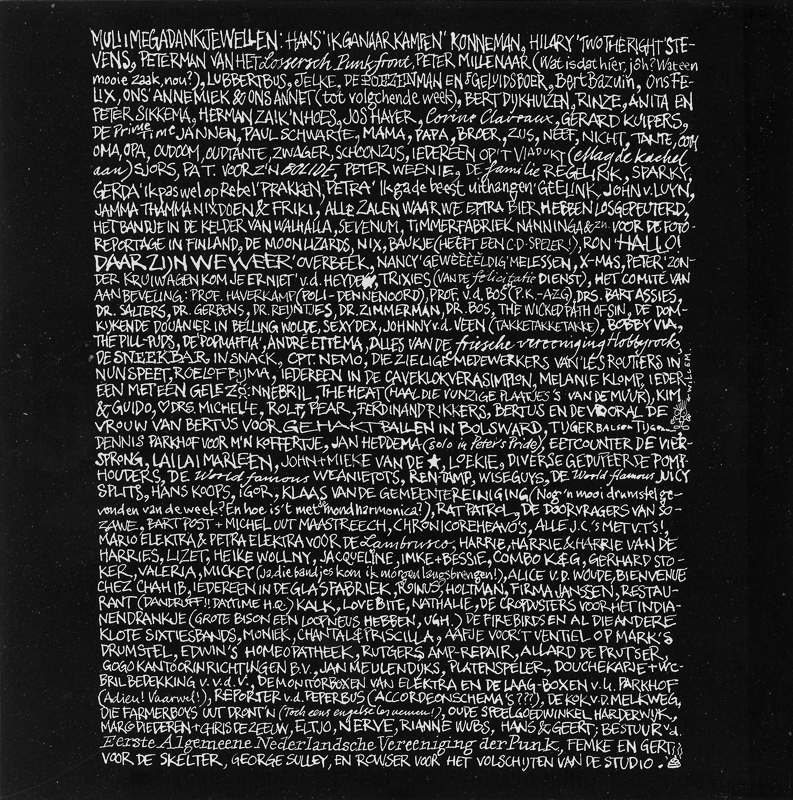 MULTIMEGADANKJEWELLEN: HANS 'IK GA NAAR KAMPEN' KONNEMAN, HILARY 'TWO THE RIGHT' STE-
VENS, PETERMAN VAN HET Lossersch Punkfront, PETER MILLENAAR (Wat is dat hier, jôh? Wat een
mooie zaak, nou?), LUBBERTBUS, JELKE, DE POEZENMAN EN 'S GELUIDSBOER, Bert Bazuin, Ons FE-
LIX, ONS ANNEMIEK & ONS ANNET (tot volgchende week), BERT DIJKHUIZEN, RINZE, ANITA EN
PETER SIKKEMA, HERMAN ZAIK'NHOES, JOS HAYER, Corine Clavaux, GERARD KUIPERS,
DE Prime Time JANNEN, PAUL SCHWARTE, MAMA, PAPA, BROER, ZUS, NEEF, NICHT, TANTE, OOM
OMA, OPA, OUDOOM, OUDTANTE, ZWAGER, SCHOONZUS, IEDEREEN OP'T VIADUKT (Mag de kachel
aan) SJORS, PA T. VOOR Z'N BOLIDE, PETER WEENIE, DE familie REGELIRIK, SPARKY,
GERDA 'ik pas wel op Rebel' PRAKKEN, PETRA 'Ik ga de beest uithangen' GEELINK, JOHN v. LUYN,
JAMMA THAMMA NIXDOEN & FRIKI, ALLE ZALEN WAAR WE EPTRA BIER HEBBEN LOSGEPEUTERD,
HET BANDJE IN DE KELDER VAN WALHALLA, SEVENUM, TIMMERFABRIEK NANNINGA & zn. VOOR DE FOTO-
REPORTAGE IN FINLAND, DE MOONLIZARDS, NIX, BAUKJE (HEEFT EEN C.D-SPELER!), RON 'HALLO!
DAAR ZIJN WE WEER' OVERBEEK, NANCY 'GEWEEELDIG' MELESSEN, X-MAS, PETER 'ZON-
DER KRUIWAGEN KOM JE ER NIET' v.d. HEYDEN, TRIXIES (VAN DE felicitatie DIENST), HET COMITÉ VAN
AANBEVELING: PROF. HAVERKAMP (POLI-DENNENOORD), PROF. v.d. BOS (P.K.-AZG), DRS. BART ASSIES,
DR. SALTERS, DR. GERBENS, DR. REIJNTJES, DR. ZIMMERMAN, DR. BOS, THE WICKED PATH OF SIN, DE DOM-
KIJKENDE DOUANIER IN BELLINGWOLDE, SEXYDEX, JOHNNY v.d. VEEN (TAKKETAKKETAKKE), BOBBY VIA,
THE PILL-PUDS, DE 'POPMAFFIA', ANDRÉ ETTEMA, ALLES VAN DE friesche vereeniging Hobbyrock,
DE SNEEKBAR IN SNACK, CPT. NEMO, DIE ZIELIGE MEDEWERKERS VAN 'LES ROUTIERS' IN
NUNSPEET, ROELOF BIJMA, IEDEREEN IN DE CAVEKLOKVERASIMPLON, MELANIE KLOMP, IEDER-
EEN MET EEN GELE ZONNEBRIL, THE HEAT (HAAL DIE RUNZIGE PLAATJES 'S VAN DE MUUR), KIM
& GUIDO, ♡ DRS. MICHELLE, ROLF, PEAR, FERDINAND RIKKERS, BERTUS EN DE VOORAL DE
VROUW VAN BERTUS VOOR GEHAKTBALLEN IN BOLSWARD, TIJGERBALSEM TIJGER
DENNIS PARKHOF VOOR M'N KOFFERTJE, JAN HEDDEMA (Solo in Peter's Pride), EETCOUNTER DE VIER-
SPRONG, LAILAI MARLEEN, JOHN + MIEKE VAN DE ★, LOEKIE, DIVERSE GEDUTEERDE POMP-
HOUDERS, DE World famous WEANIETOTS, REN-TAMP, WISEGUYS, DE World flamous JUICY
SPLITS, HANS KOOPS, IGOR, KLAAS VAN DE GEMEENTEREINIGING (Nog 'n mooi drumstel ge-
vonden van de week? En hoe is 't met je mondharmonica?), RAT PATROL, DE DOORVRAGERS VAN SO-
ZAWE, BART POST + MICHEL UUT MAASTREECH, CHRONICOREHEAVO'S, ALLE J.C.'S MET V.T'S!,
MARIO ELEKTRA & PETRA ELEKTRA VOOR DE Lambrusco, HARRIE, HARRIE & HARRIE VAN DE
HARRIES, LIZET, HEIKE WOLLNY, JACQUELINE, IMKE + BESSIE, COMBO K&G, GERHARD STO-
KER, VALERIA, MICKEY (Ja, die bandjes kom ik morgen langsbrengen!), ALICE V.D. WOUDE, BIENVENUE
CHEZ CHAHIB, IEDEREEN IN DE GLASFABRIEK, REINUS, HOLTMAN, FIRMA JANSSEN, RESTAU-
RANT (DANDRUFF!! DAYTIME H.Q.) KALK, LOVEBITE, NATHALIE, DE CROPDUSTERS VOOR HET INDIA-
NENDRANKJE (GROTE BISON EEN LOOPNEUS HEBBEN, UGH.) DE FIREBIRDS EN AL DIE ANDERE
KLOTE SIXTIESBANDS, MONIEK, CHANTAL & PRISCILLA, AAFJE VOOR'T VENTIEL OP MARK'S
DRUMSTEL, EDWIN'S HOMEOPATHEEK, RUTGERS AMP-REPAIR, ALLARD DE PRUTSER,
GOGO KANTOORINRICHTINGEN B.V., JAN MEULENDIJKS, PLATENSPELER, DOUCHEKAPJE + WC-
BRIL BEDEKKING v.v.d.v., DE MONITORBOXEN VAN ELEKTRA EN DE LAAG-BOXEN v.h. PARKHOF
(Adieu! Vaarwel!), REPORTER v.d. PEPERBUS (ACCORDEONSCHEMA'S???), DE KOK v.d. MELKWEG,
DIE FARMERBOYS UUT DRONT'N (Toch eens engelse les nemen!), OUDE SPEELGOEDWINKEL HARDERWIJK,
MARGO DIEDEREN + CHRIS DE ZEEUW, ELTJO, NERVE, RIANNE WUBS, HANS & GEERT; BESTUUR v.d.
Eerste Algemeene Nederlandsche Vereeniging der Punk, FEMKE EN GERT
VOOR DE SKELTER, GEORGE SULLEY, EN ROWSER VOOR HET VOLSCHIJTEN VAN DE STUDIO.